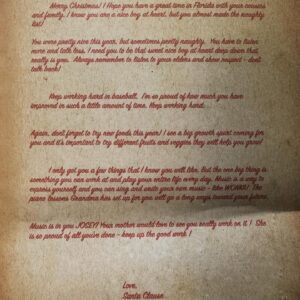 Merry Christmas! I Hope you have a great time in Florida with your cousins
and family. I know you are a nice boy at heart, but you almost made the naughty
list!
You were pretty nice this year, but sometimes pretty naughty. You have to listen
more and talk less. I need you to be that sweet nice boy at heart deep down that
really is you. Always remember to listen to your elders and show respect - dont
talk back!
Keep working hard in baseball. I'm so proud of how much you have
improved in such a little amount of time. Keep working hard. . .
Again, dont forget to try new foods this year! I see a big growth spurt coming for
you and it's important to try different fruits and veggies they will help you grow!
I only got you a few things that I know you will like. But the one big thing is
something you can work at and play your entire life every day. Music is a way to
express yourself and you can sing and write your own music - like WORMS! The
piano lessons Grandma has set up for you will go a long ways toward your future.
Music is in you JOSEY! Your mother would love to see you really work on it ! She
is so proud of all you've done - keep up the good work !
Love,
Santa Clause